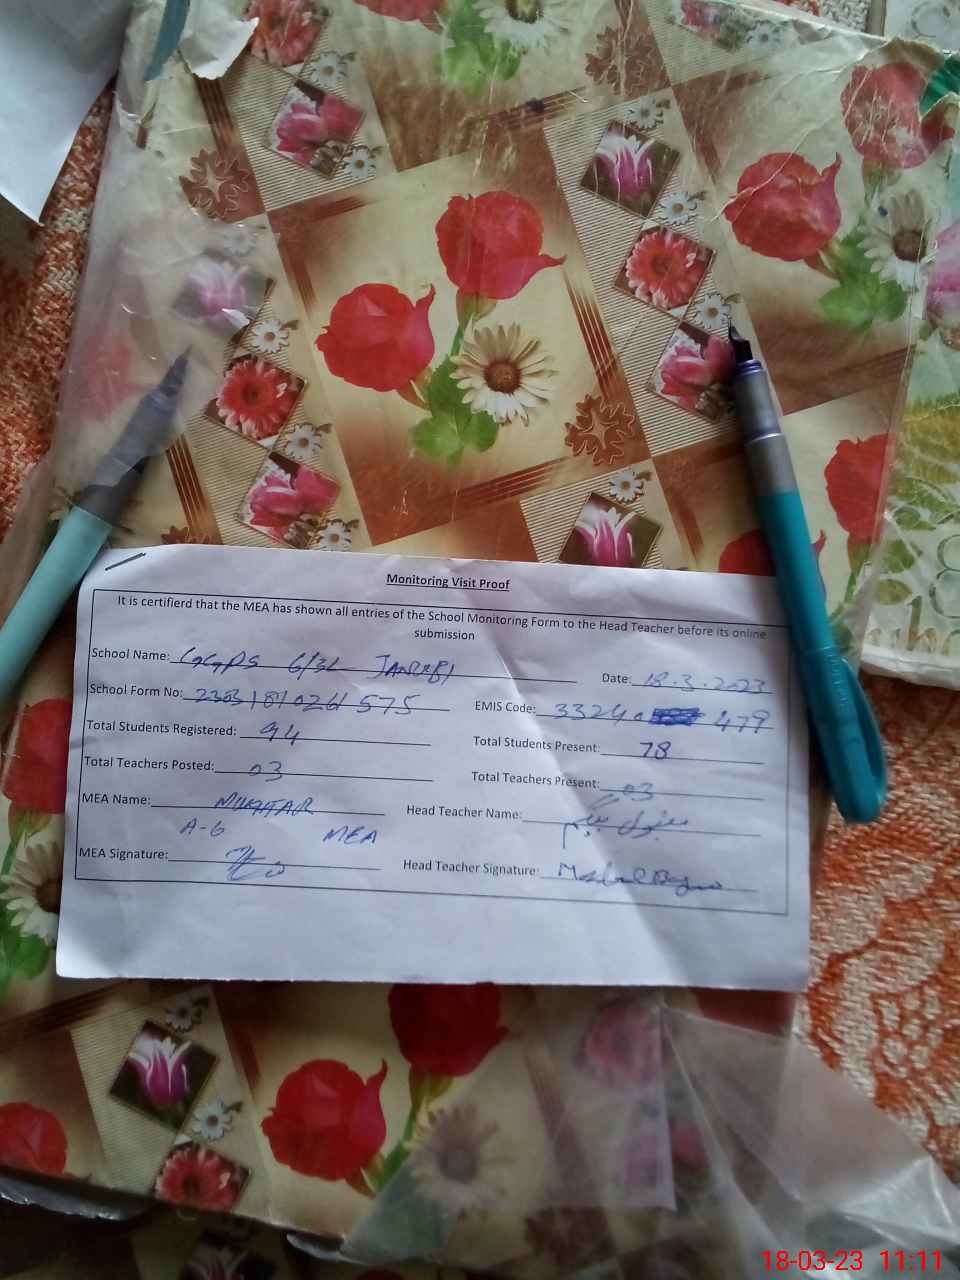 Monitoring Visit Proof
It is certifierd that the MEA has shown all entries of the School Monitoring Form to the Head Teacher before its online
submission
School Name: GGPS 6/3L JANUBI Date: 18.3.2023
School Form No: 575 EMIS Code: 33240 479
Total Students Registered: 94 Total Students Present: 78
Total Teachers Posted: 03 Total Teachers Present: 03
MEA Name: MUKHTAR Head Teacher Name:
A-6 MEA
MEA Signature: Head Teacher Signature:
18-03-23 11:11